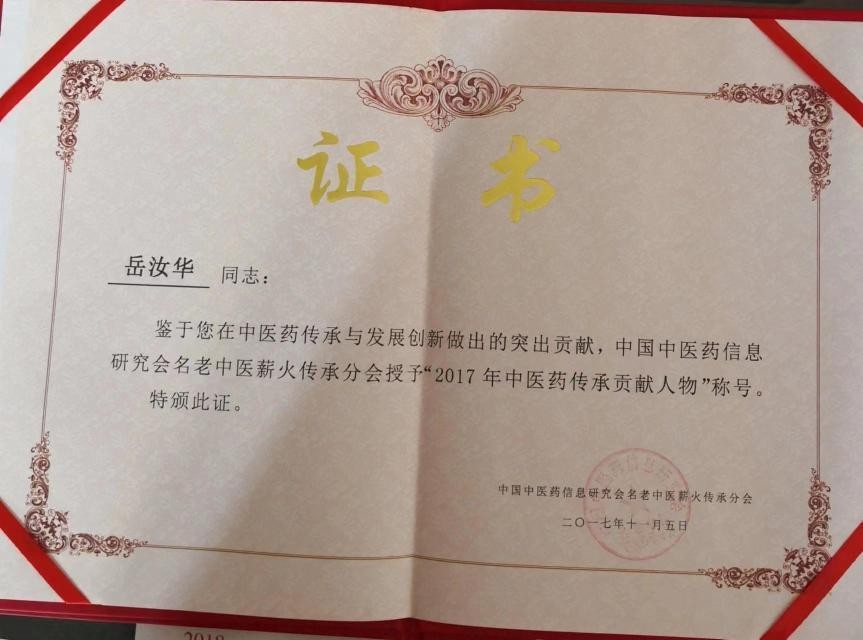 证 书
岳汝华 同志：
鉴于您在中医药传承与发展创新做出的突出贡献，中国中医药信息
研究会名老中医薪火传承分会授予“2017年中医药传承贡献人物”称号。
特颁此证。
中国中医药信息研究会名老中医薪火传承分会
二〇一七年十一月五日
2018